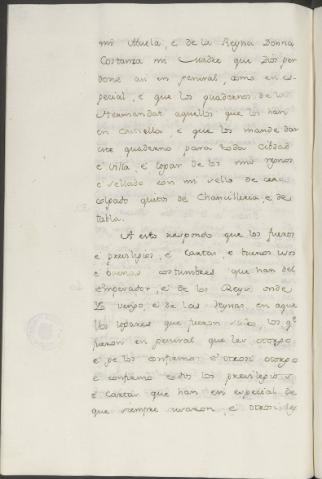 mi Abuela, e de la Reyna Donna
Costanza mi Madre que Dios per
done asi en general, como en es
pecial, e que los quadernos de la
Hermandat aquellos que los han
en Castiella, e que les mande dar
este quaderno para todas Cibdad
e Villa, e logar de los mis regnos
e sellado con mi sello de cera
colgado quitos de Chancilleria, e de
tabla.
A esto respondo que los fueros
e previlegios, e cartas e buenos usos
e buenas costumbres que han del
Emperador, e de los Reys onde
Yo vengo, e de las Reynas en aque
llos logares que fueron suios, los q.e
fueron en general que les otorgo
e ge los confirmo e otrosi otorgo
e confirmo todos los previlegios
e cartas que han en especial de
que siempre usaron, e otrosi los